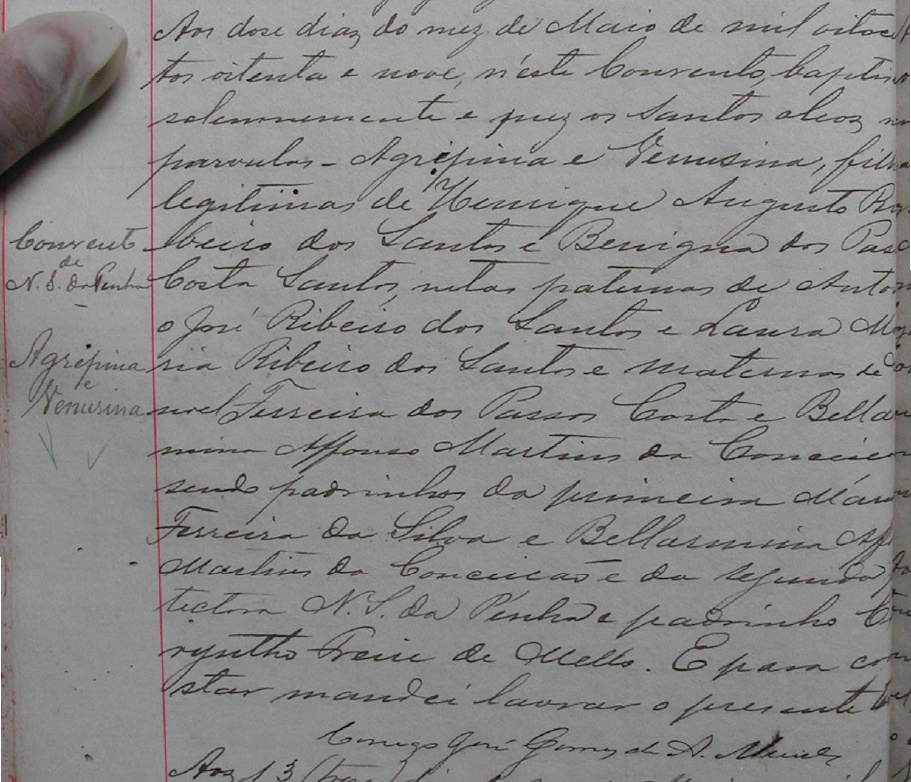 Aos dose dias do mez de Maio de mil oitocen
tos oitenta e nove, n'este Convento, baptiso
solemnemente e puz os santos oleos
parvulas - Agripina e Venusina, filhas
legitimas de Henrique Augusto Ri
Convento
beiro dos Santos e Benigna dos Pas
de
N. S. da Penha
Costa Santos, netas paternas de Anton
o José Ribeiro dos Santos e Laura Ma
Agripina
ria Ribeiro dos Santos e maternas de
e
Venusina
noel Ferreira dos Passos Costa e Bellar
mina Affonso Martins da Conceicao
sendo padrinhos da primeira
Ferreira da Silva e Bellarmina Aff
Martins da Conceicão e da segunda pro
tectora N. S. da Penha e padrinho
ryntho Freire de Mello. E para con
star mandei lavrar o presente
Conego José Gomes de A.
Aos 13 (tres)